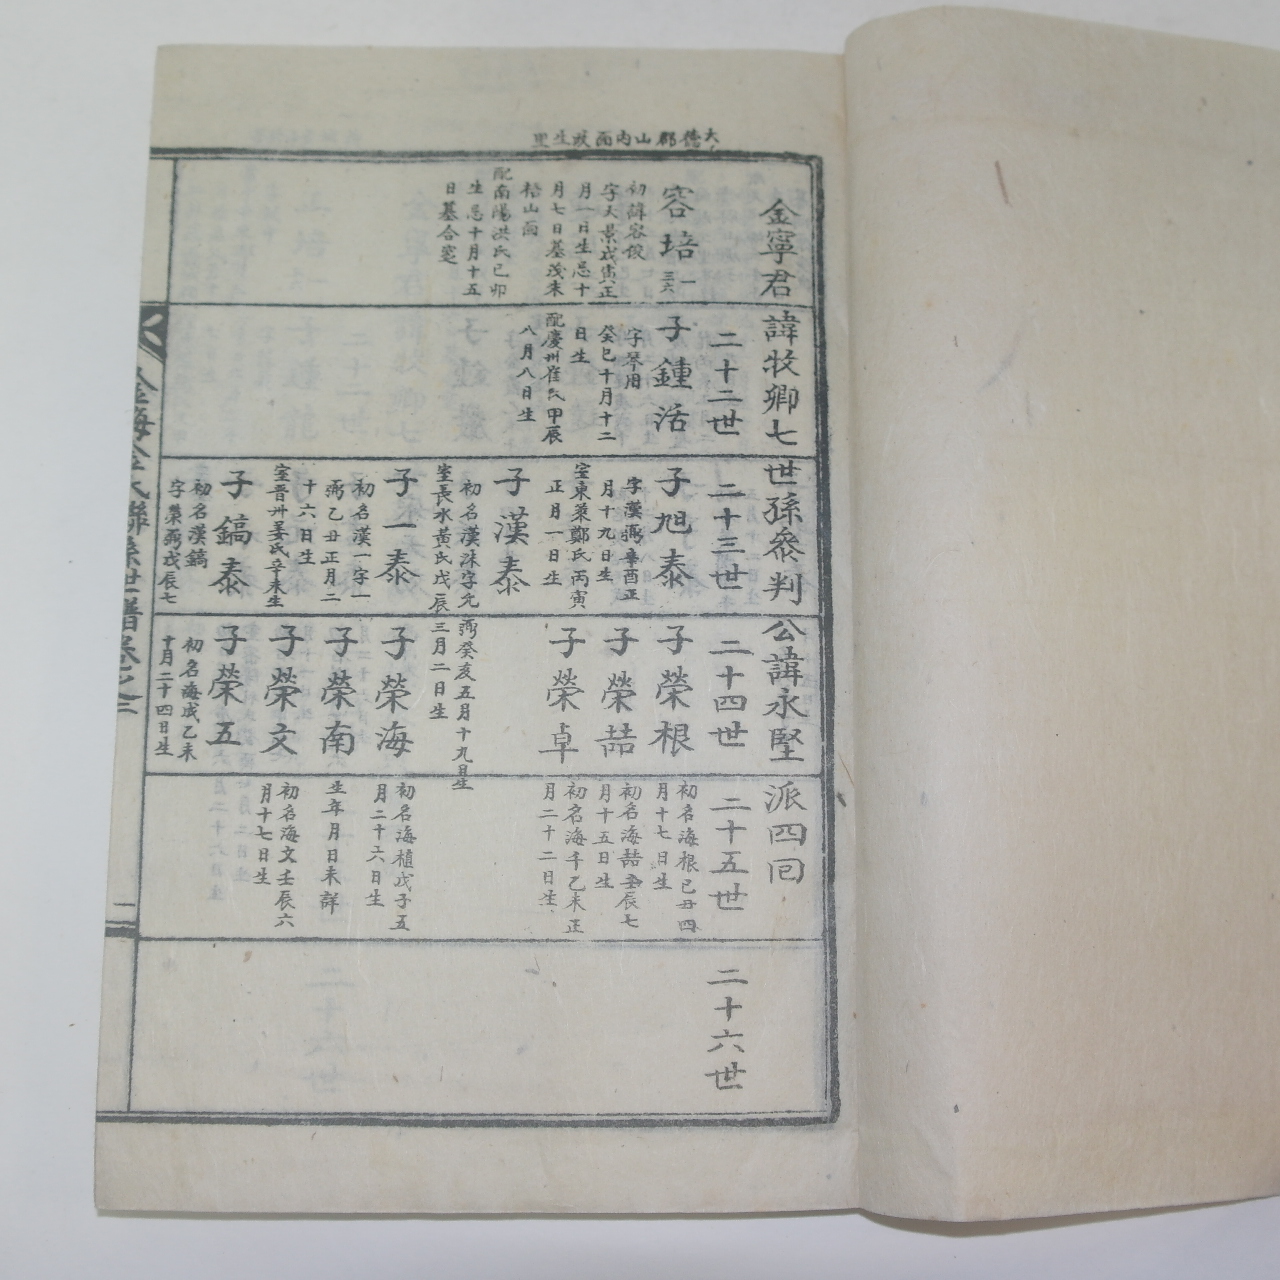 大德郡山內面破生里
金寧君諱牧卿七世孫叅判公諱永堅派四囘
容培 一 三六
初諱容俊
字天景戊寅正
月一日生忌十
月七日墓茂朱
梧山面
配南陽洪氏己卯
生忌十月十五
日墓合窆
二十二世
子鍾活
字琴用
癸巳十月十二
日生
配慶州崔氏甲辰
八月八日生
二十三世
子旭泰
字漢弼辛酉正
月十九日生
室東萊鄭氏丙寅
正月一日生
子漢泰
初名漢洙字允
弼癸亥五月十九日生
室長水黃氏戊辰
三月二日生
子一泰
初名漢一字一
弼乙丑正月二
十六日生
室晋州姜氏辛未生
子鎬泰
初名漢鎬
字榮弼戊辰七
十月二十四日生
二十四世
子榮根
子榮喆
子榮卓
子榮海
子榮南
子榮文
子榮五
初名海成乙未
二十五世
初名海根己丑四
月十七日生
初名海喆壬辰七
月十五日生
初名海千乙未正
月二十二日生
初名海植戊子五
月二十六日生
生年月日未詳
初名海文壬辰六
月十七日生
二十六世
金海金氏聯系世譜卷之二
二